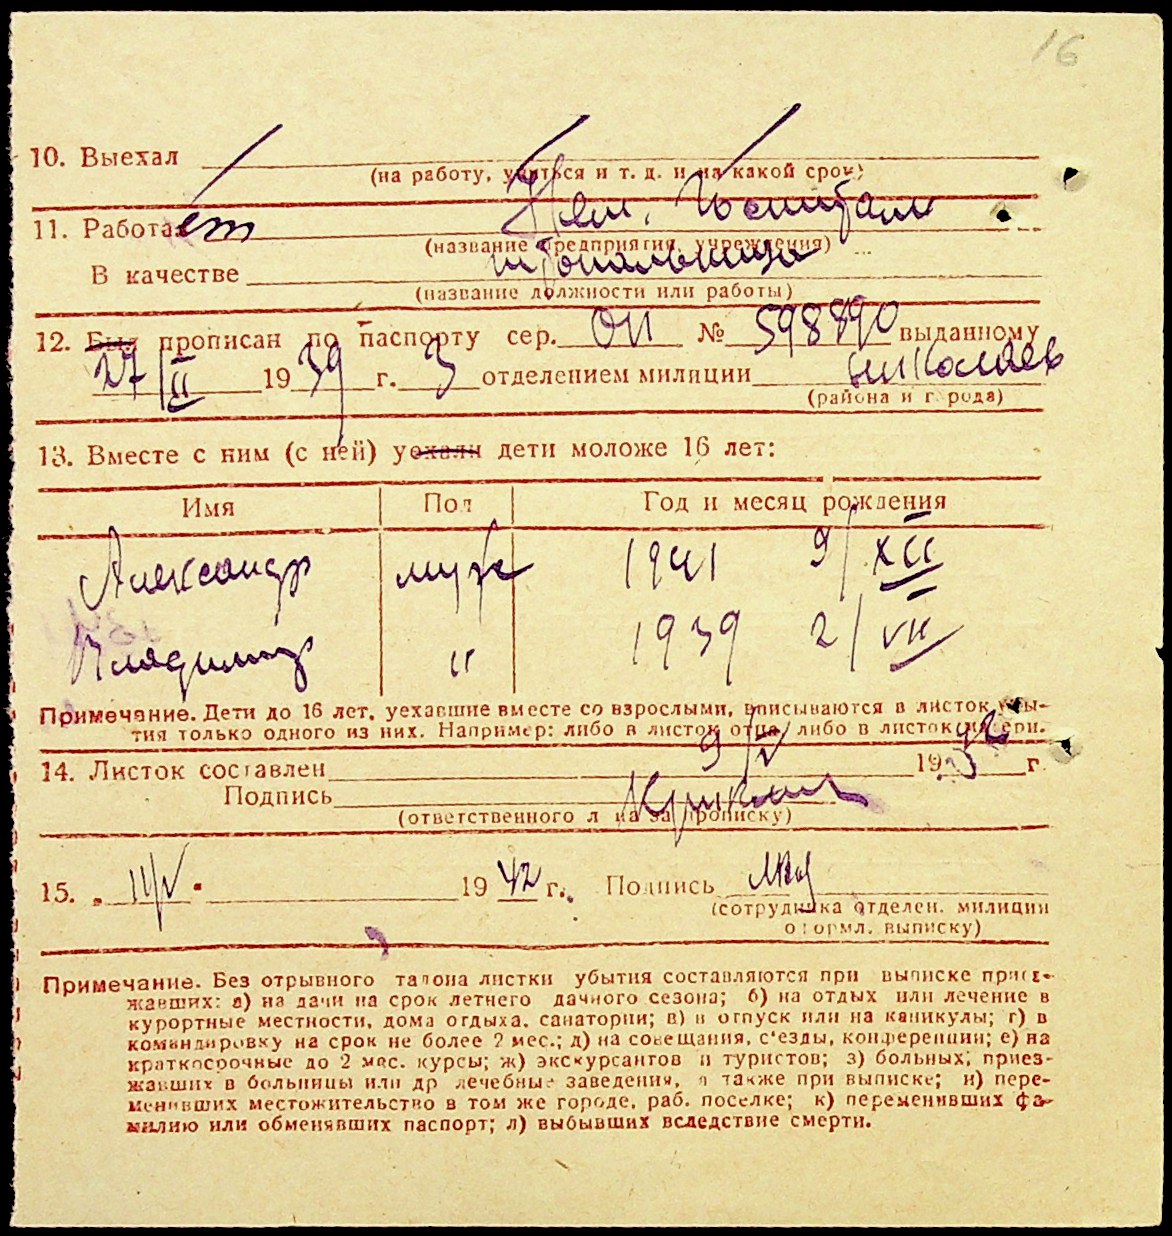 16
10. Выехал
(на работу, учиться и т. д. и на какой срок)
11. Работает Нем. Госпитале
(название предприятия, учреждения)
В качестве
(название должности или работы)
12. Был прописан по паспорту сер. ОП № 598890 выданному
27/II 1939 г. 3 отделением милиции Николаев
(района и города)
13. Вместе с ним (с ней) уехали дети моложе 16 лет:
Имя Пол Год и месяц рождения
Александр муж 1941 9/XII
Владимир " 1939 2/VII
Примечание. Дети до 16 лет, уехавшие вместе со взрослыми, вписываются в листок убы-
тия только одного из них. Например: либо в листок отца, либо в листок матери.
14. Листок составлен 9/V 1942 г
Подпись
(ответственного лица за прописку)
15. 11/V 1942 г. Подпись
(сотрудника отделен. милиции
оформл. выписку)
Примечание. Без отрывного талона листки убытия составляются при выписке приез-
жавших: а) на дачи на срок летнего дачного сезона; б) на отдых или лечение в
курортные местности, дома отдыха, санатории; в) в отпуск или на каникулы; г) в
командировку на срок не более 2 мес.; д) на совещания, с'езды, конференции; е) на
краткосрочные до 2 мес. курсы; ж) экскурсантов и туристов; з) больных, приез-
жавших в больницы или др лечебные заведения, а также при выписке; и) пере-
менивших местожительство в том же городе, раб. поселке; к) переменивших фа-
милию или обменявших паспорт; л) выбывших вследствие смерти.